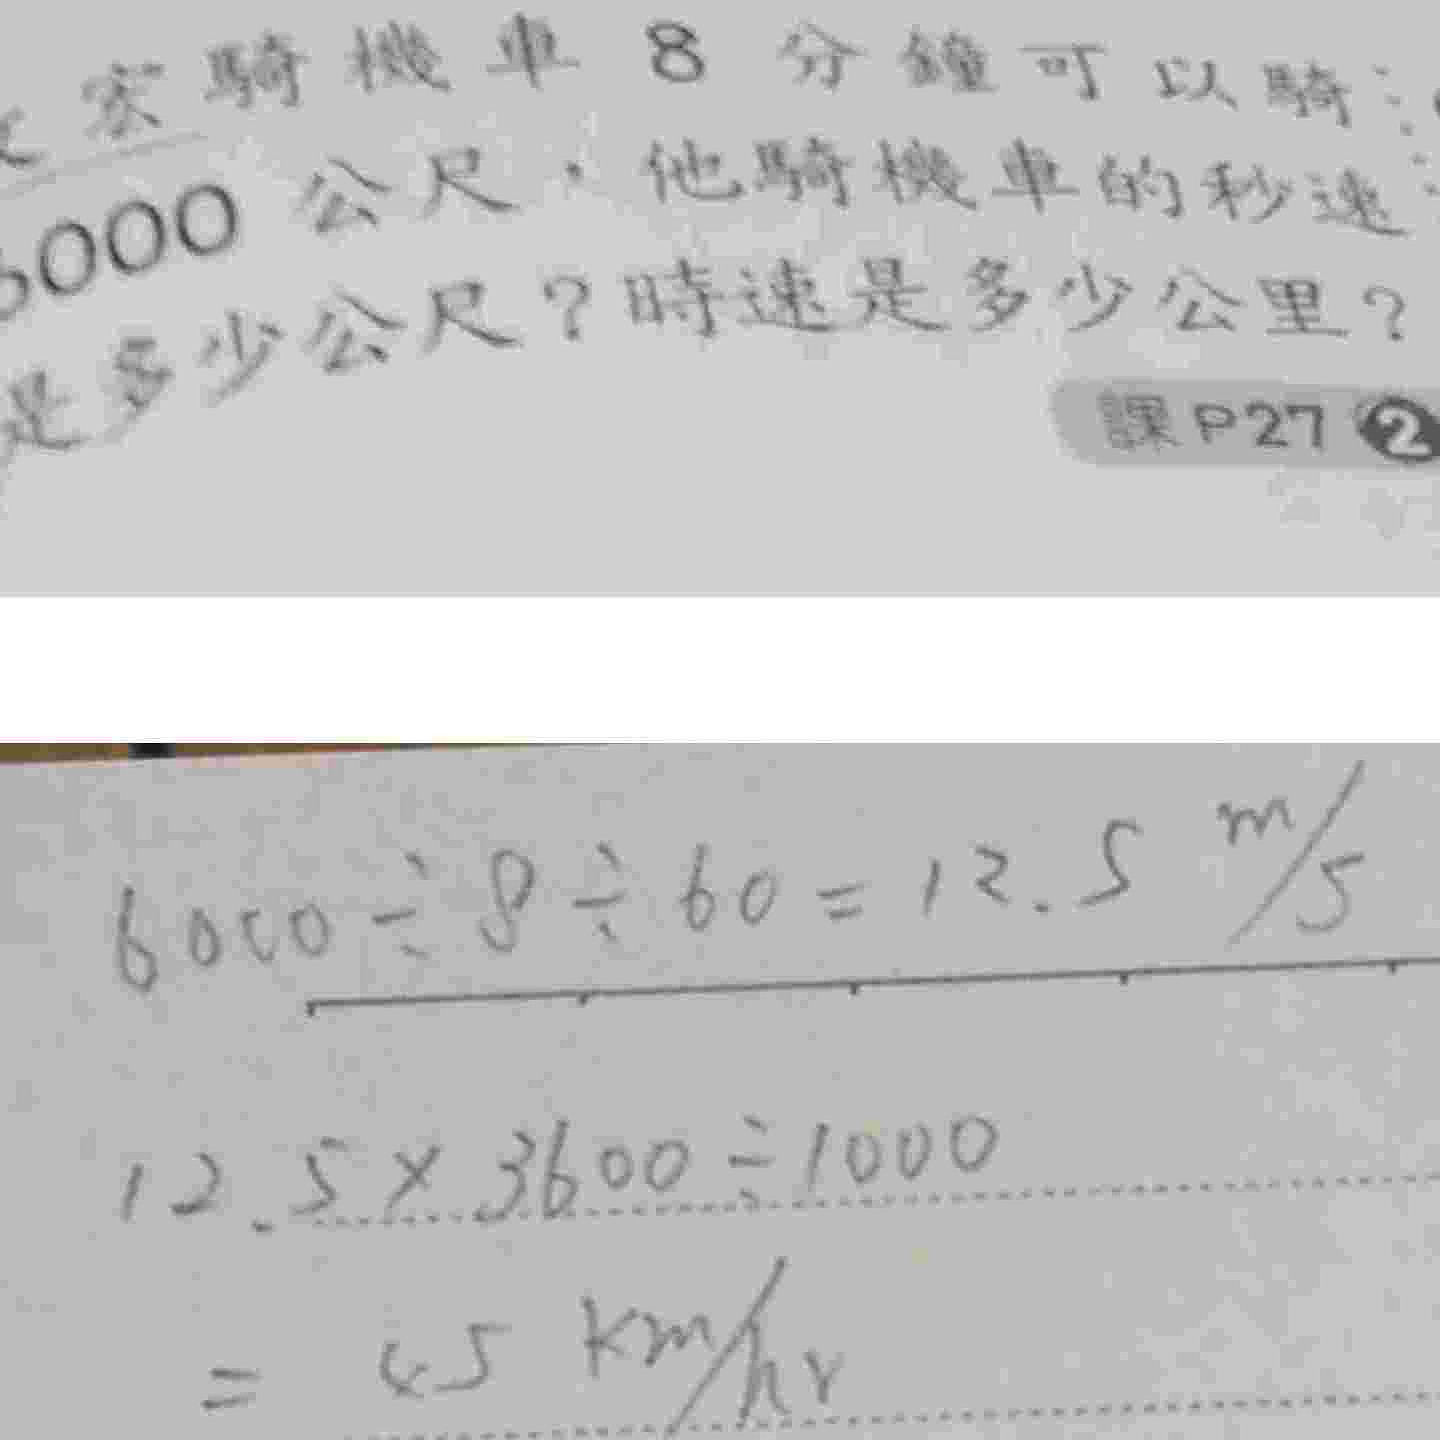 家騎機車 8 分鐘可以騎
6000 公尺，他騎機車的秒速
是多少公尺？時速是多少公里？
課 P27 2
6000 ÷ 8 ÷ 60 = 12.5 m/s
12.5 × 3600 ÷ 1000
= 45 km/hr